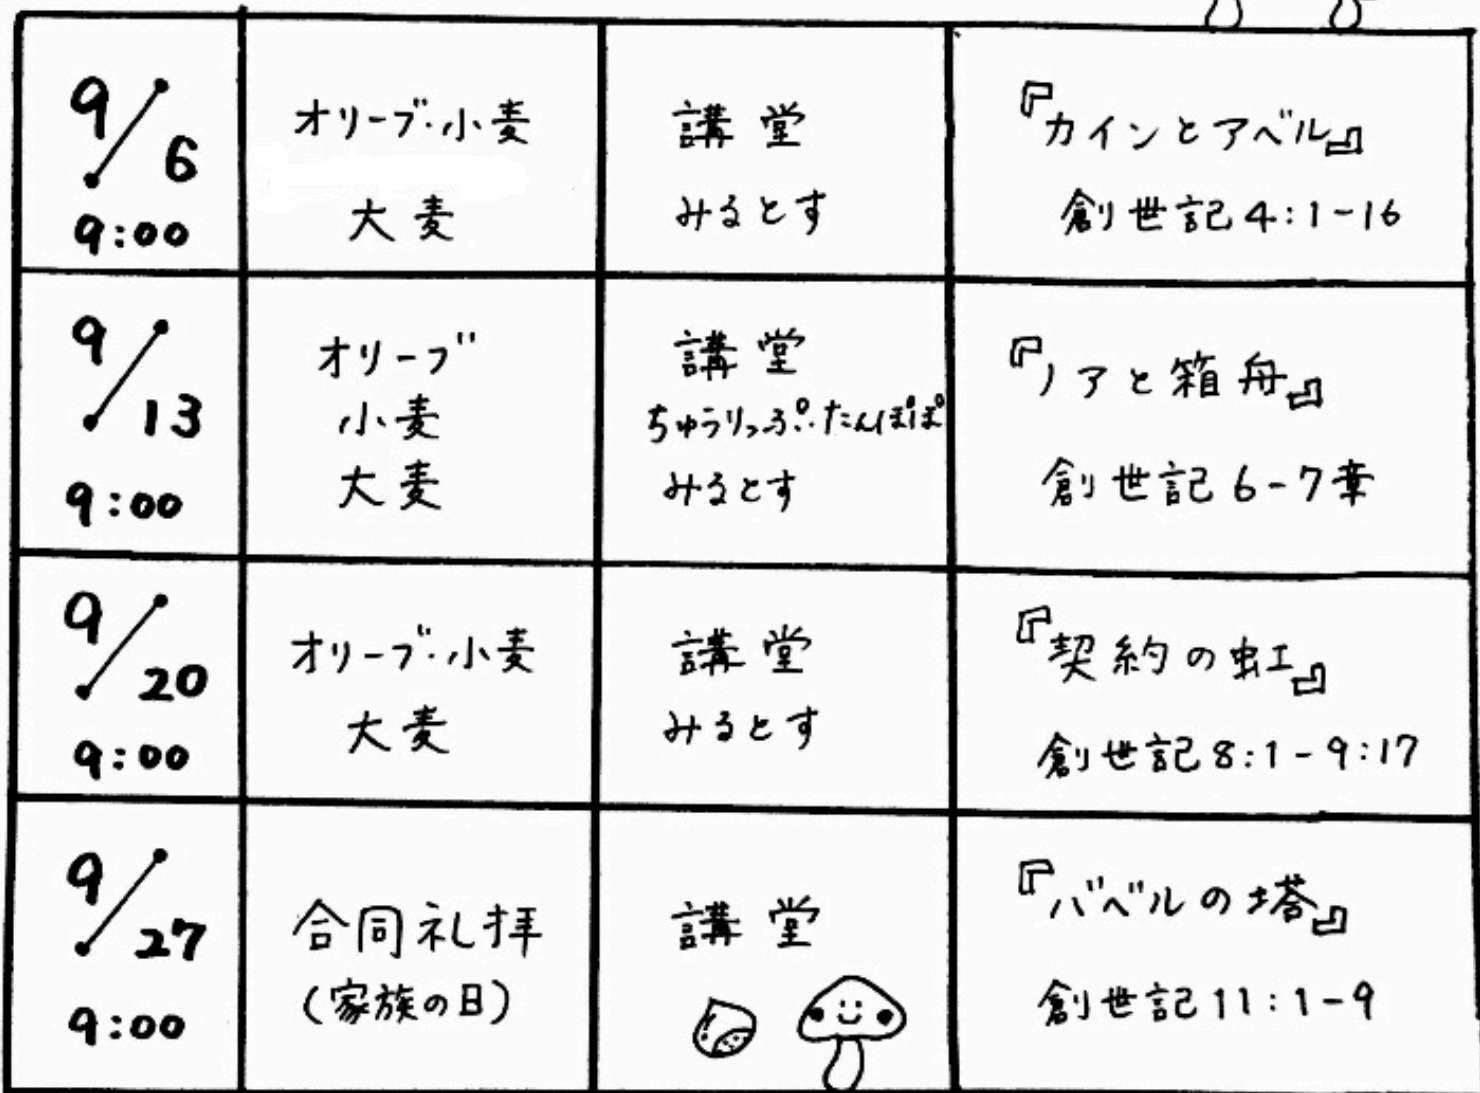 9/6
9:00
オリーブ・小麦
大麦
講堂
みるとす
『カインとアベル』
創世記4:1-16
9/13
9:00
オリーブ
小麦
大麦
講堂
ちゅうりっぷ・たんぽぽ
みるとす
『ノアと箱舟』
創世記6-7章
9/20
9:00
オリーブ・小麦
大麦
講堂
みるとす
『契約の虹』
創世記8:1-9:17
9/27
9:00
合同礼拝
(家族の日)
講堂
『バベルの塔』
創世記11:1-9